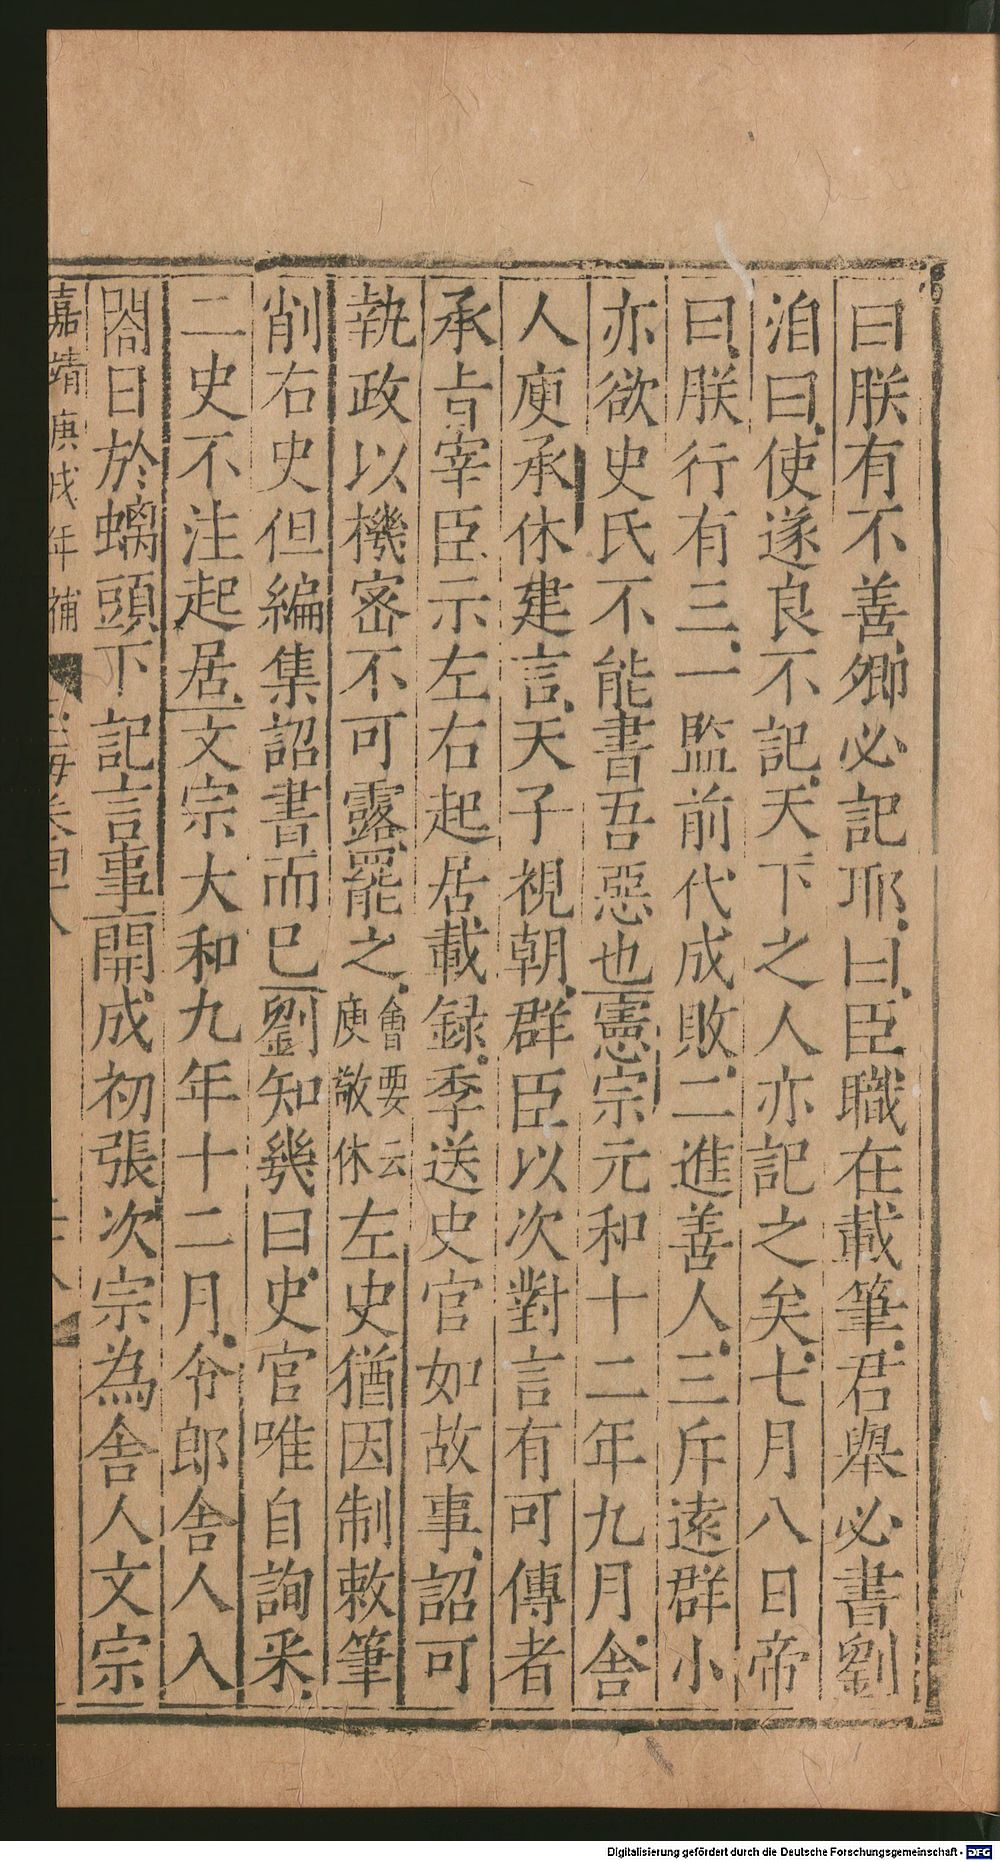 曰朕有不善卿必記耶曰臣職在載筆君舉必書劉
洎曰使遂良不記天下之人亦記之矣七月八日帝
曰朕行有三一監前代成敗二進善人三斥遠群小
亦欲史氏不能書吾惡也憲宗元和十二年九月舍
人庾承休建言天子視朝群臣以次對言有可傳者
承旨宰臣示左右起居載録季送史官如故事詔可
執政以機宻不可露罷之會要云庾敬休左史猶因制敕筆
削右史但編集詔書而已劉知幾曰史官唯自詢采
二史不注起居文宗大和九年十二月令郎舍人入
閤日於螭頭下記言事開成初張次宗為舍人文宗
嘉靖庚戌年補
玉海卷四十八
Digitalisierung gefördert durch die Deutsche Forschungsgemeinschaft - DFG